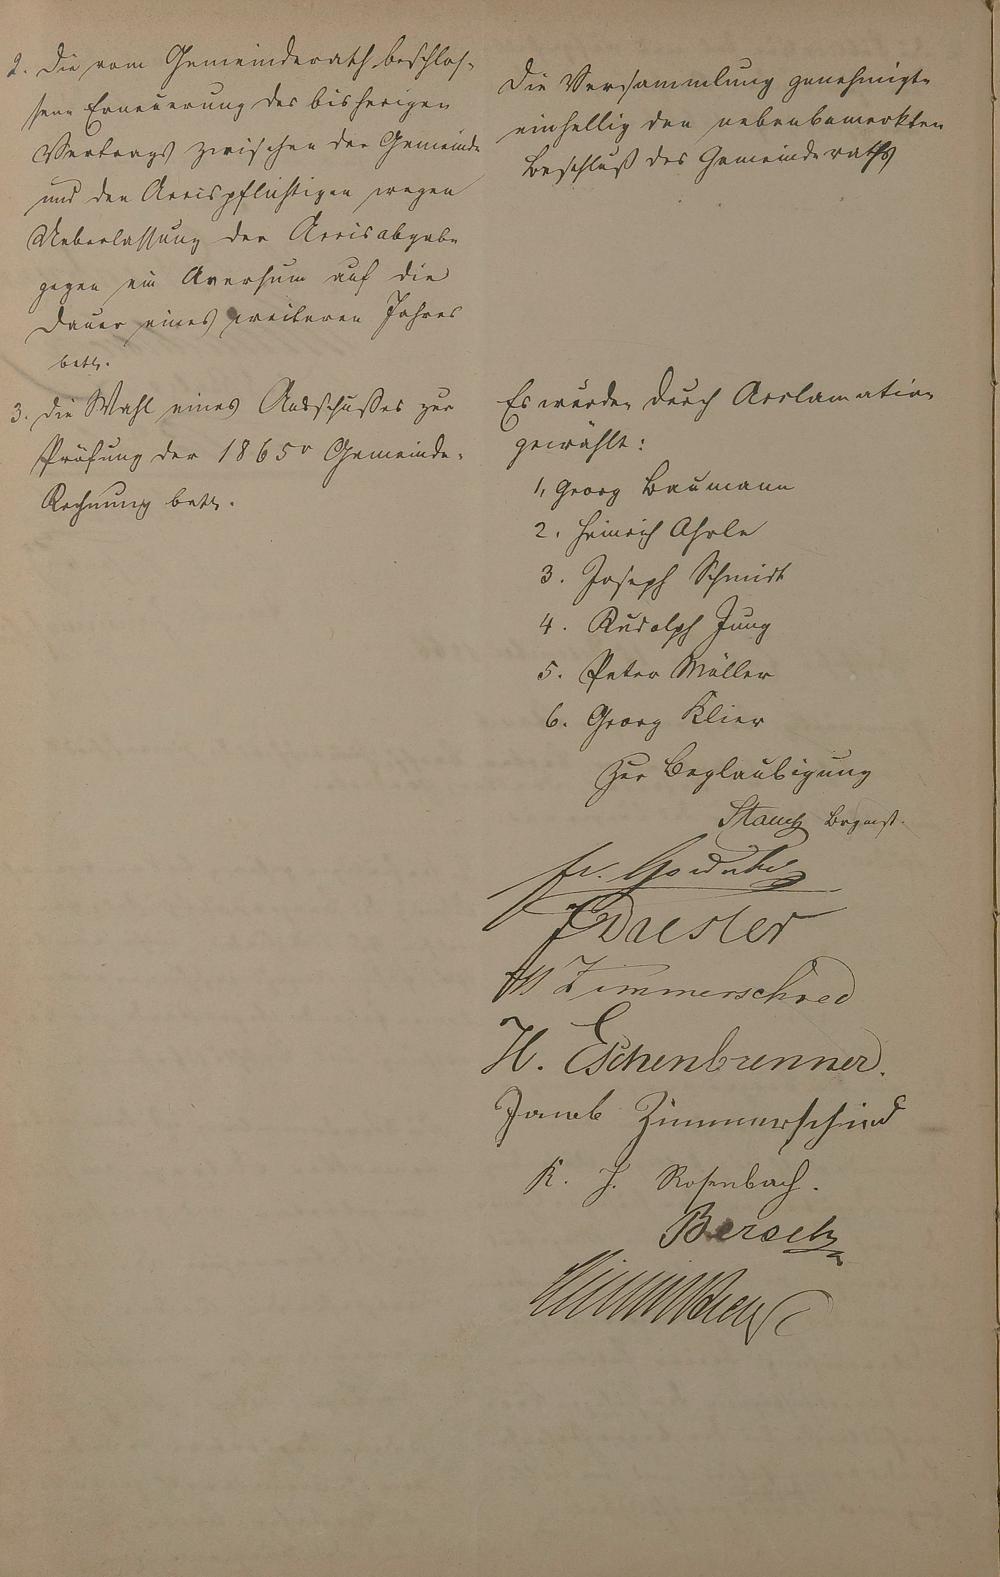 2. Die vom Gemeinderath beschlos-
sene Erneuerung des bisherigen
Vertrags zwischen der Gemeinde
und den Accispflichtigen wegen
Ueberlassung der Accisabgabe
gegen ein Aversum auf die
Dauer eines weiteren Jahres
betr.
3. die Wahl eines Ausschußes zur
Prüfung der 1865r Gemeinde-
Rechnung betr.
Die Versammlung genehmigte
einhellig den nebenbemerkten
Beschluß des Gemeinderaths
Es wurden durch Acclamation
gewählt:
1, Georg Baumann
2. Heinrich Ahrle
3. Joseph Schmidt
4. Rudolph Jung
5. Peter Müller
6. Georg Klier
Zur Beglaubigung
Stamm Brgmst.
Fr.
J Daesler
W Zimmerschied
H. Eschenbrenner.
Jacob Zimmerschied
K. J. Rosenbach.
Bersch